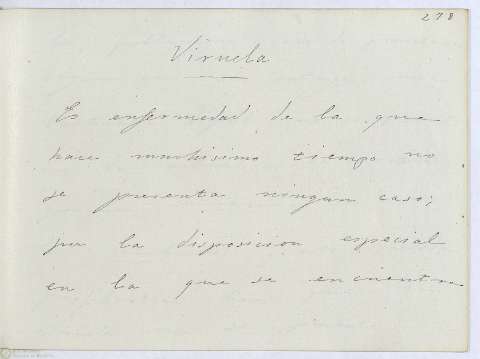 278
Viruela
Es enfermedad de la que
hace muchisimo tiempo no
se presenta ningun caso;
por la disposicion especial
en la que se encuentra